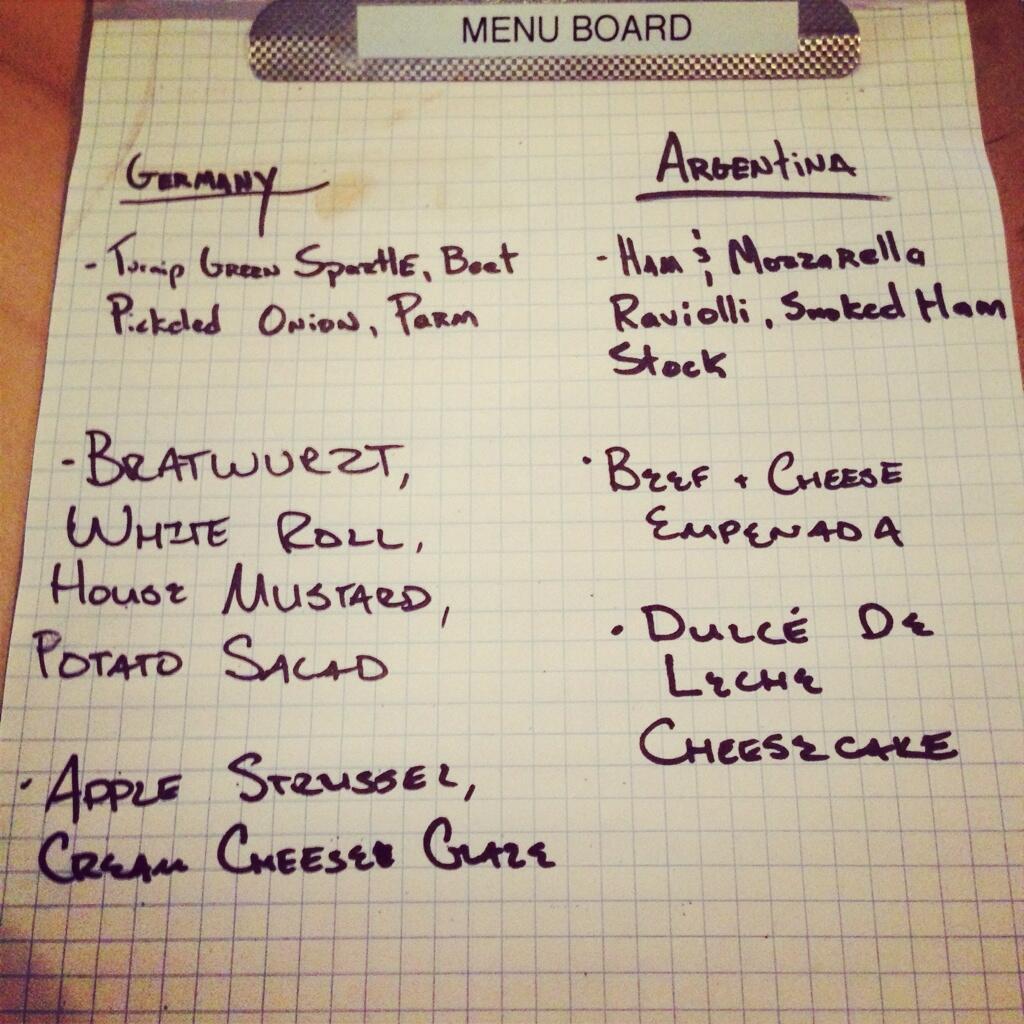 MENU BOARD
GERMANY
- Turnip GREEN SpaetLE, Beet
Pickeled ONION, PARM
- BRATWURZT,
WHITE ROLL,
HOUSE MUSTARD,
POTATO SALAD
· APPLE STRUSSEL,
CREAM CHEESE GLAZE
ARGENTINA
- HAM & MOZZARELLA
RAViOLLi, SMOKED HAM
STOCK
· BEEF + CHEESE
EMPENADA
· DULCÉ DE
LECHE
CHEESECAKE